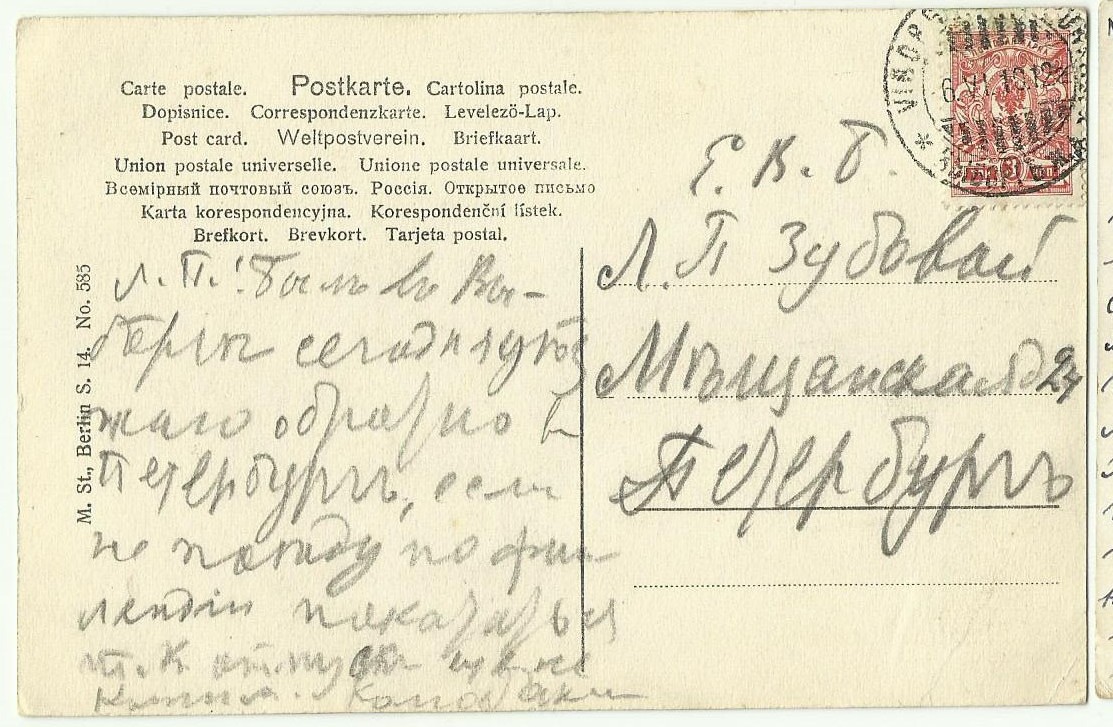 Carte postale. Postkarte. Cartolina postale.
Dopisnice. Correspondenzkarte. Levelezö-Lap.
Post card. Weltpostverein. Briefkaart.
Union postale universelle. Unione postale universale.
Всемірный почтовый союзъ. Россія. Открытое письмо
Karta korespondencyjna. Korespondenční lístek.
Brefkort. Brevkort. Tarjeta postal.
M. St., Berlin S. 14. No. 585
Л. П.! Былъ въ Вы-
боргѣ сегодня
образно в
Петербургъ, если
не поѣду по Фин
ляндіи покататься
т. к. отпускъ еще не
Е. В. Б.
Л. П. Зубовой
Мѣщанская д 24
Петербургъ
6.VI.13.12
3 коп